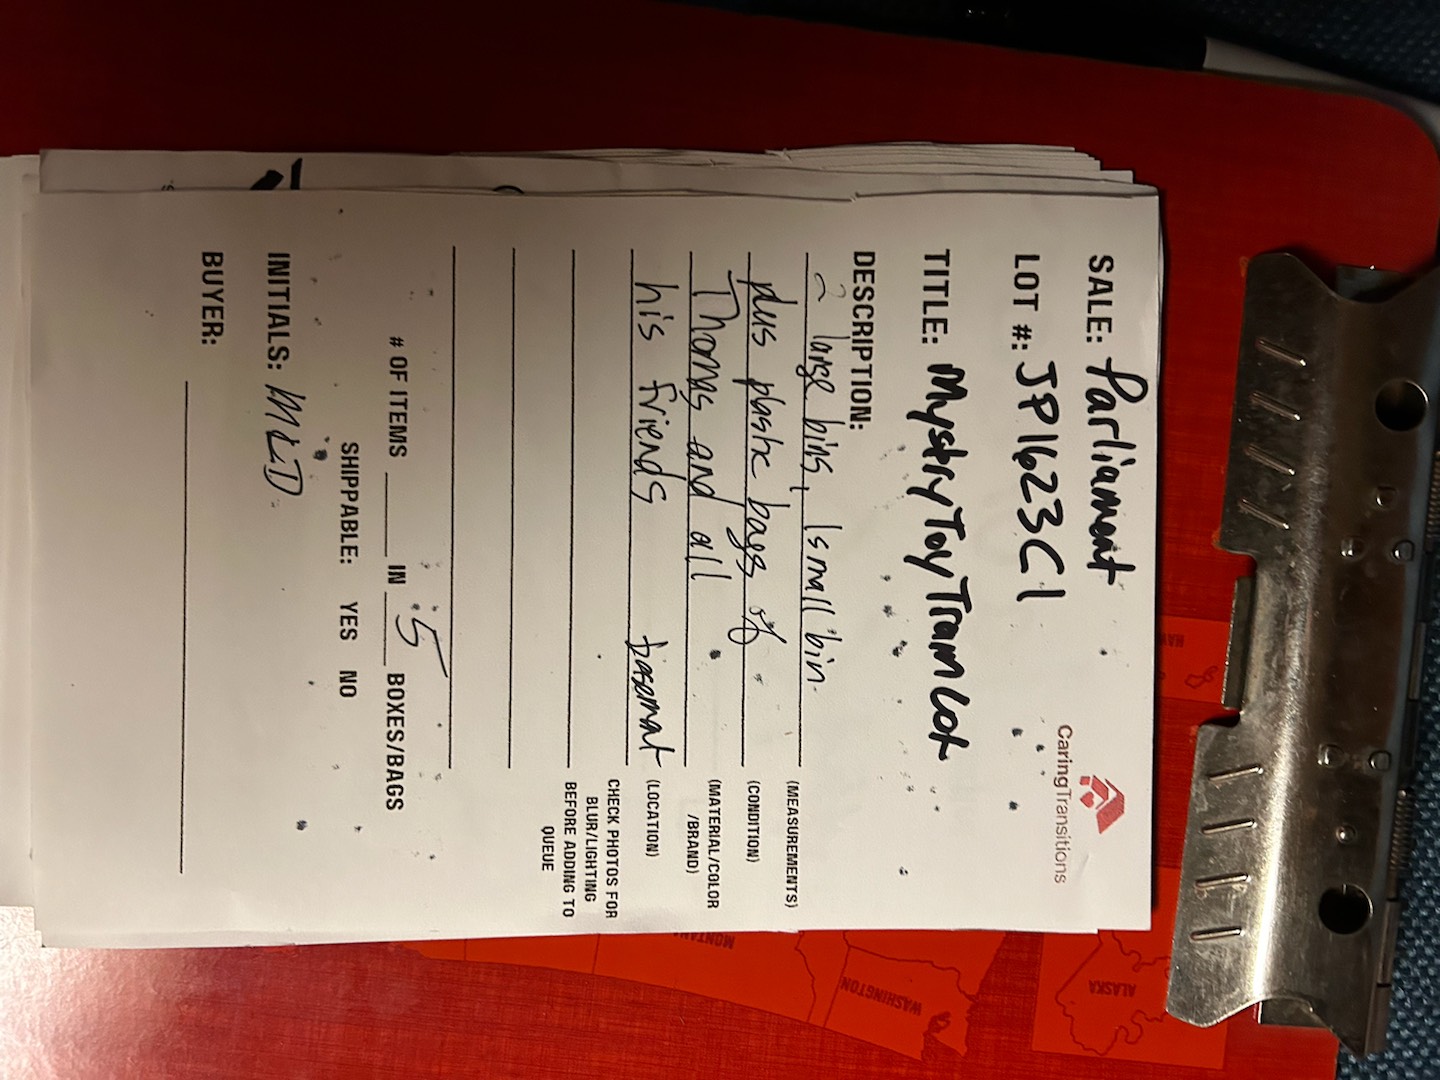 CaringTransitions
SALE: Parliament
LOT #: JP1623C1
TITLE: Mystry Toy Tram Lot
DESCRIPTION:
2 large bins, 1 small bin (MEASUREMENTS)
plus plastic bags of (CONDITION)
Thomas and all (MATERIAL/COLOR
/BRAND)
his friends basemnt (LOCATION)
CHECK PHOTOS FOR
BLUR/LIGHTING
BEFORE ADDING TO
QUEUE
# OF ITEMS ____ IN 5 BOXES/BAGS
SHIPPABLE: YES NO
INITIALS: MLD
BUYER:
ALASKA
WASHINGTON
MONTANA
HAW